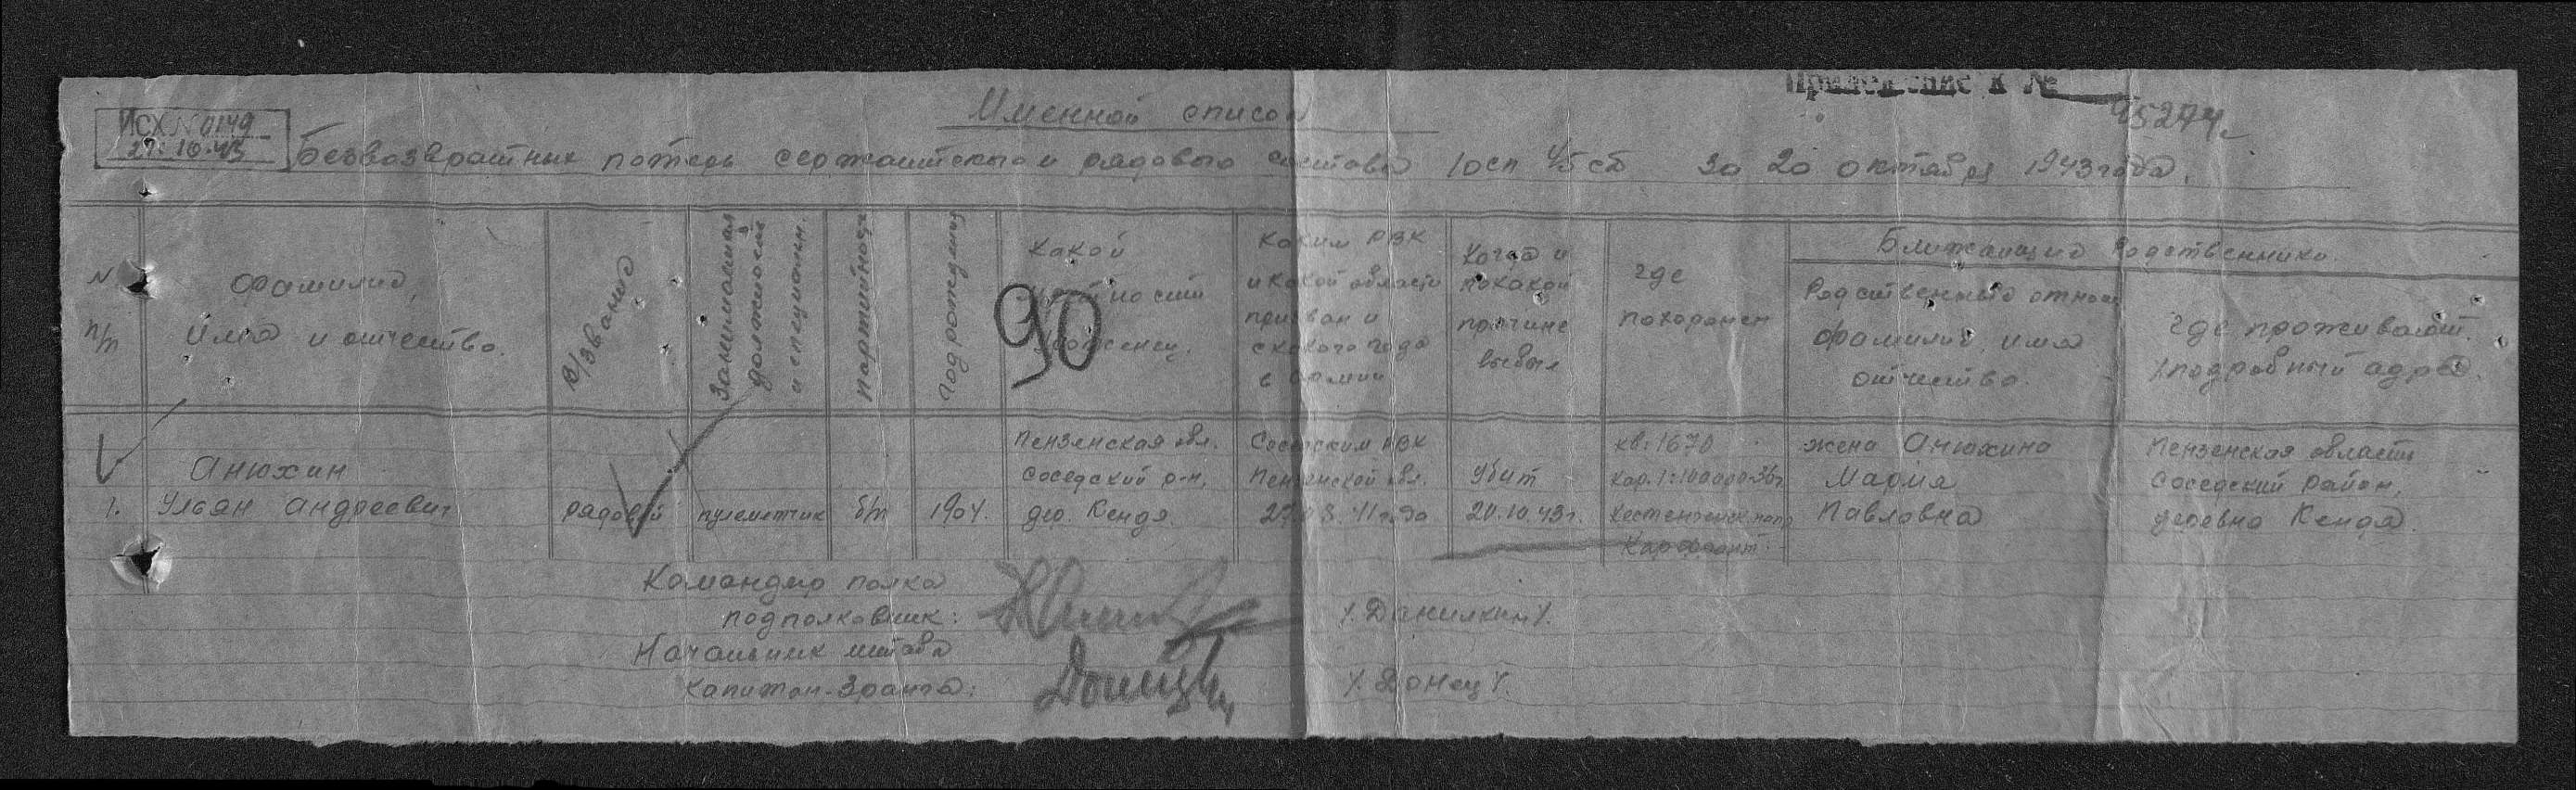 Приложение к №
95274с
Именной список
ИСХ N 0149
27.10.43
Безвозвратных потерь сержантского и рядового состава 10сп 45сд за 20 октября 1943 года.
N п/п
Фамилия, имя и отчество.
в/звание
Занимаемая должность и специальн.
партийность
Год рождения
Какой местности уроженец.
90
Каким РВК и какой области призван и с какого года в армии
Когда и по какой причине выбыл
где похоронен
Ближайшие родственники
Родственные отнош фамилия, имя отчество.
где проживают. /подробный адрес.
1. Анюхин Ульян Андреевич
рядовой
пулеметчик
б/п
1904.
Пензенская обл. Соседский р-н, дер. Кендя
Соседским РВК Пензенской обл. 27.08.41 года
Убит 20.10.43г.
кв: 1670 кар. 1:100000-36г
Кар фронт.
жена Анюхина Мария Павловна
Пензенская область Соседский район, деревня Кендя.
Командир полка
подполковник: /.Данилкин/.
Начальник штаба
капитан-3ранга: /.Донец/.